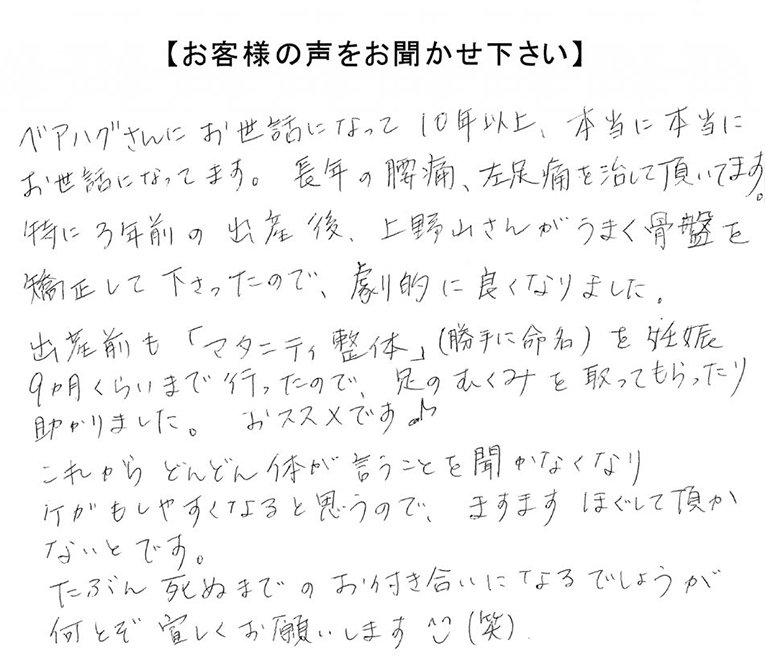 【お客様の声をお聞かせ下さい】
ベアハグさんにお世話になって10年以上、本当に本当に
お世話になってます。長年の腰痛、左足痛を治して頂いてます。
特に3年前の出産後、上野山さんがうまく骨盤を
矯正して下さったので、劇的に良くなりました。
出産前も「マタニティ整体」(勝手に命名)を妊娠
9ヵ月くらいまで行ったので、足のむくみを取ってもらったり
助かりました。 おススメです♪
これからどんどん体が言うことを聞かなくなり
ケガもしやすくなると思うので、ますますほぐして頂か
ないとです。
たぶん死ぬまでのお付き合いになるでしょうが
何とぞ宜しくお願いします(笑)